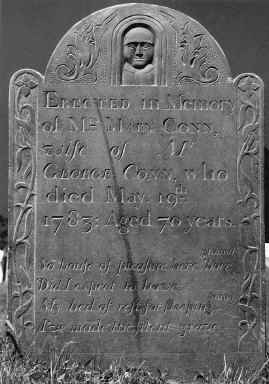 Erected in Memory
of Mrs Mary Conn,
wife of Mr
George Conn, who
died May 19th
1783; Aged 70 years.
ground
No house of pleasure here bove
Did I expect to have;
found
My bed of rest for sleeping
I've made the silent grave.